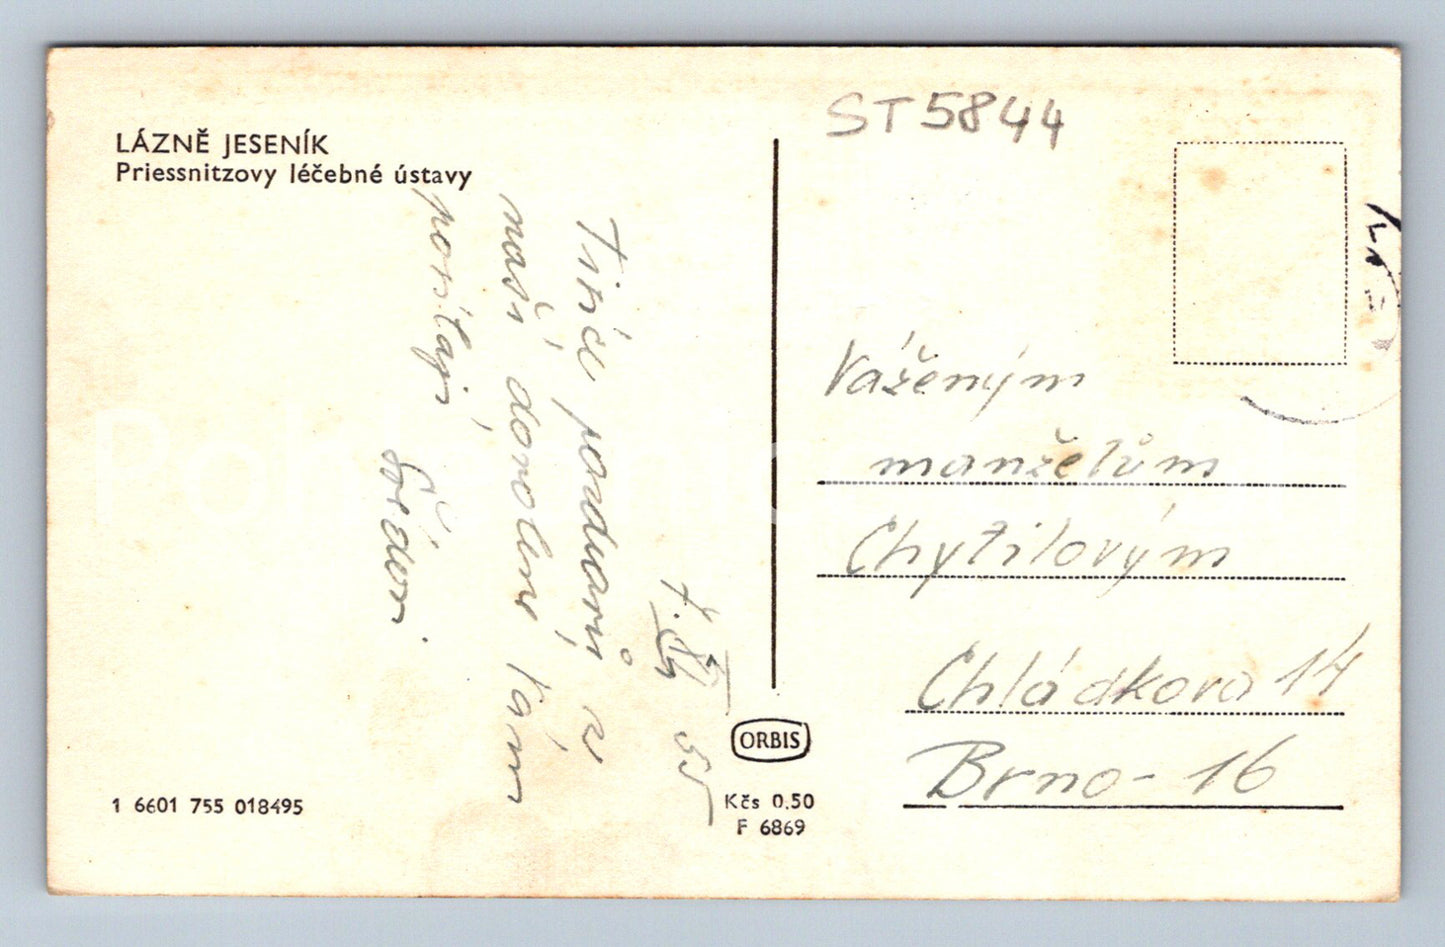 LÁZNĚ JESENÍK
Priessnitzovy léčebné ústavy
Tisíce pozdravů z
naší dovolené Vám
posílají
7. VII
55
ST5844
Váženým
manželům
Chytilovým
Chládkova 14
Brno-16
ORBIS
Kčs 0.50
F 6869
1 6601 755 018495